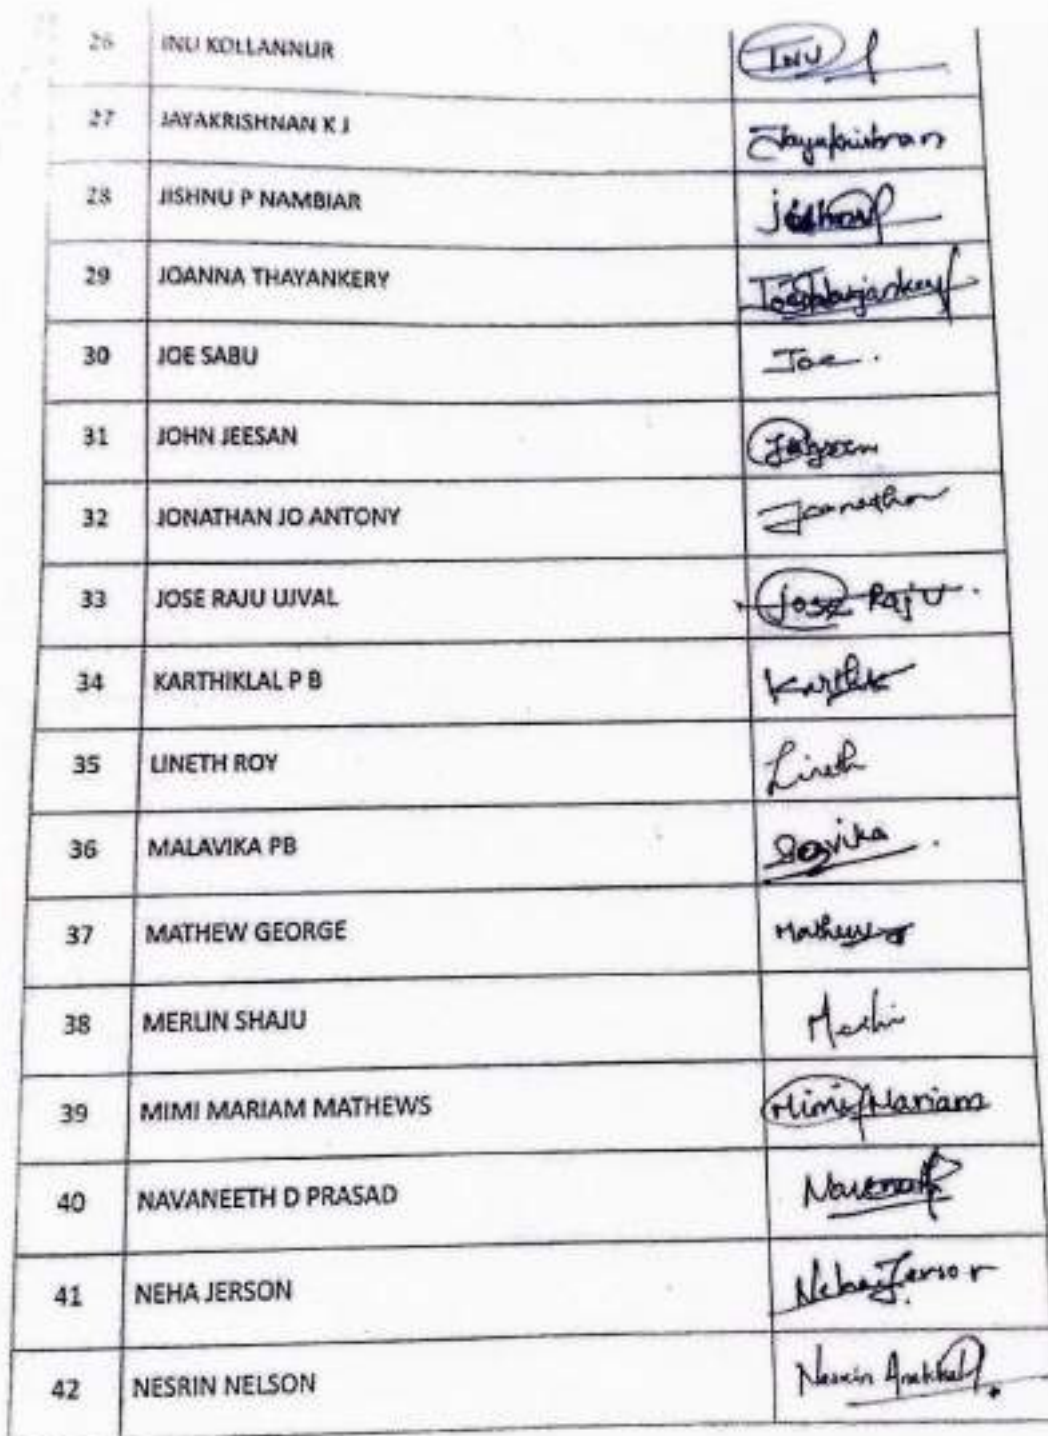 26 INU KOLLANNUR INU
27 JAYAKRISHNAN K J Jayakrishnan
28 JISHNU P NAMBIAR
29 JOANNA THAYANKERY
30 JOE SABU Joe.
31 JOHN JEESAN
32 JONATHAN JO ANTONY
33 JOSE RAJU UJVAL Jose Raju
34 KARTHIKLAL P B Karthik
35 LINETH ROY Lineth
36 MALAVIKA PB
37 MATHEW GEORGE Mathew
38 MERLIN SHAJU
39 MIMI MARIAM MATHEWS Mimi Mariam
40 NAVANEETH D PRASAD
41 NEHA JERSON Neha Jerson
42 NESRIN NELSON Nesrin